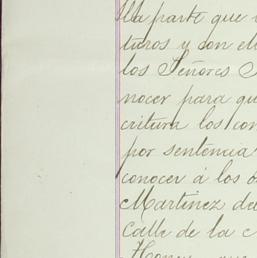 lla parte que
turos y con el
los Señores
nocer para qu
critura los con
por sentencia
conocer á los
Martinez de
Calle de la c